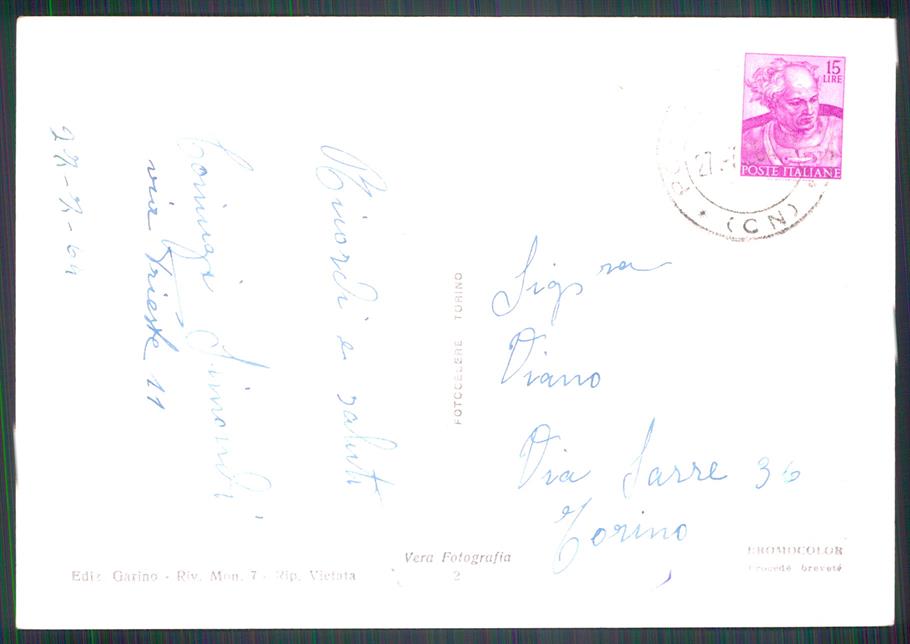 15
LIRE
POSTE ITALIANE
27.-7
(CN)
Ricordi e saluti
Simondi
via Trieste 11
27-7-64
FOTOCELERE TORINO
Sigra
Viano
Via Sarre 36
Torino
Vera Fotografia
2
Ediz Garino - Riv. Mon. 7 - Rip. Vietata
BROMOCOLOR
Procédé breveté